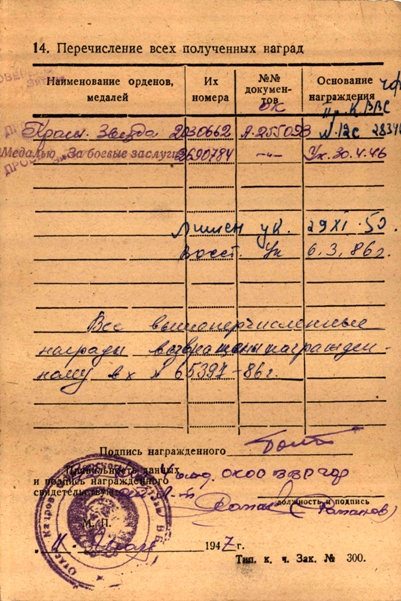 14. Перечисление всех полученных наград
Наименование орденов, медалей
Их номера
№№ документов
Основание награждения
Пр. КВВС
Красн. Звезда 2030662 А-255093 N. 12с
Медалью „За боевые заслуги" 2690784 -„- Ук. 30.4.46
Лишен ук. 29 XI. 50.
Восст. Ук 6.3.86г.
Все вышеперечисленные
награды возвращены награжден-
ному вх № 65397-86г.
Подпись награжденного
Правильность данных
и подпись награжденного
свидетельствую
должность и подпись
М. П.
1947 г.
Тип. к. ч. Зак. № 300.